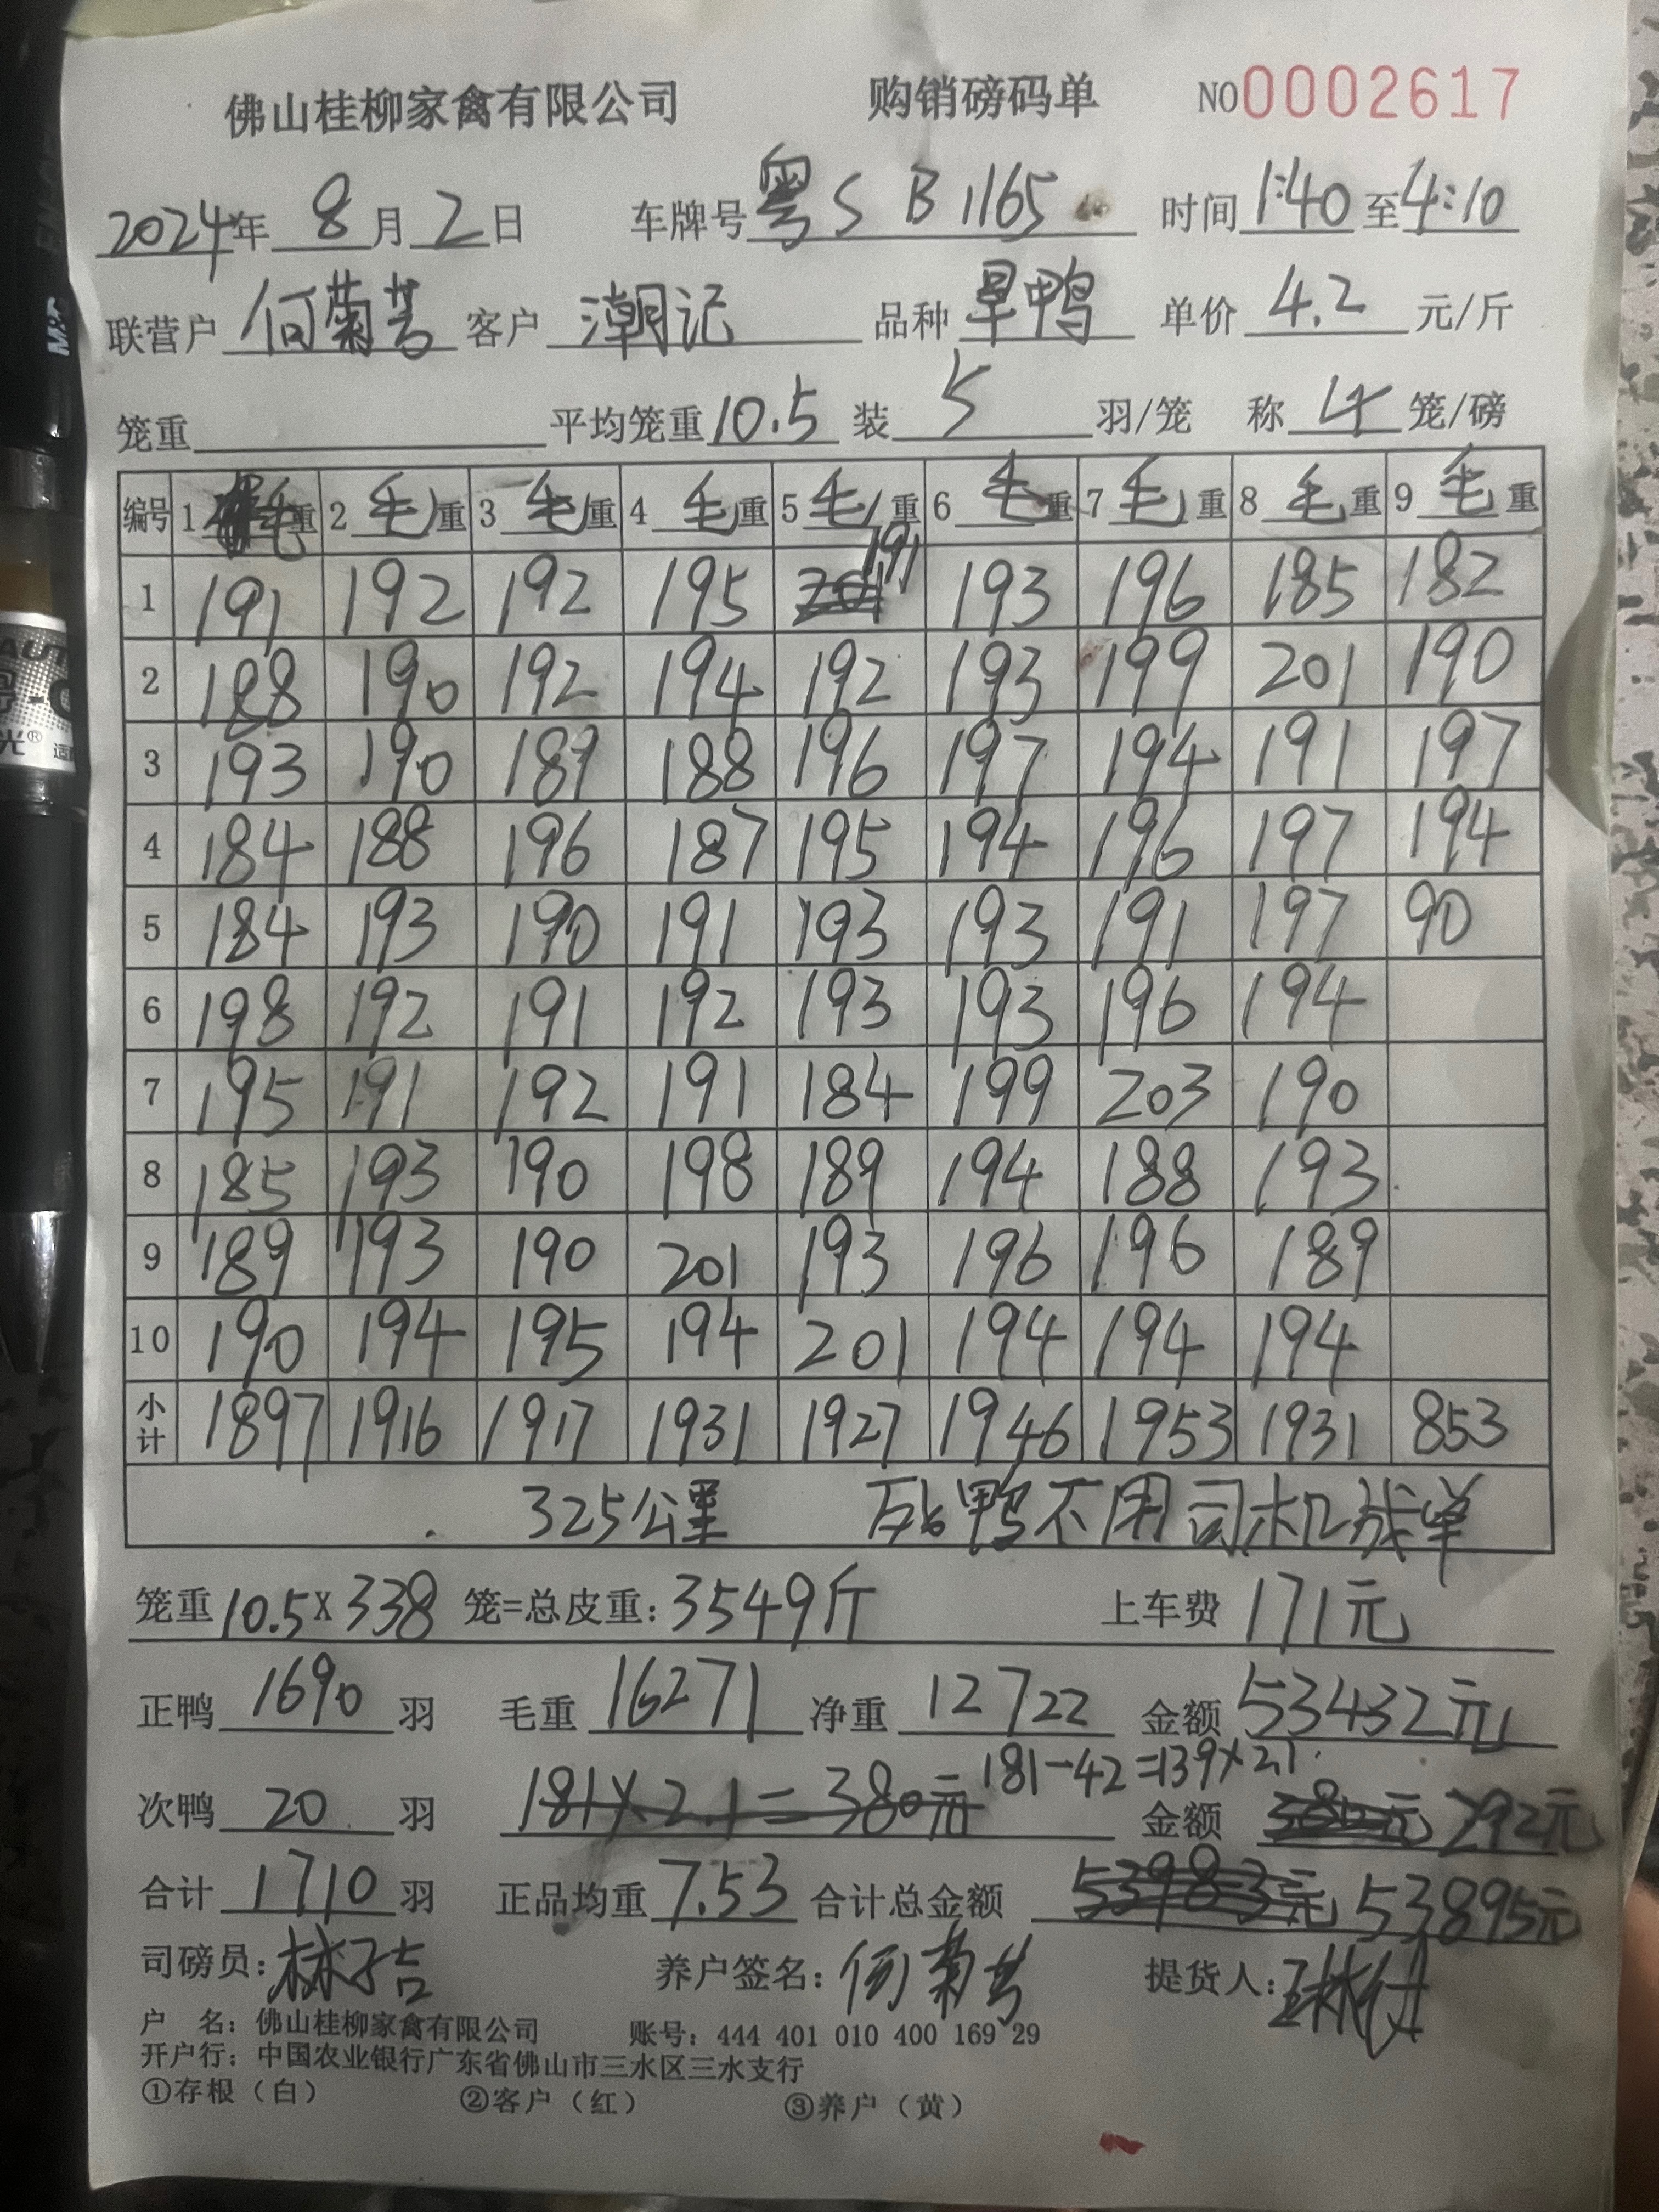 佛山桂柳家禽有限公司 购销磅码单 NO0002617
2024年 8月 2日 车牌号 粤S B1165 时间 1:40 至 4:10
联营户 何菊芳 客户 潮记 品种 旱鸭 单价 4.2 元/斤
笼重 平均笼重 10.5 装 5 羽/笼 称 4 笼/磅
编号 1 毛重 2 毛重 3 毛重 4 毛重 5 毛重 6 毛重 7 毛重 8 毛重 9 毛重
1 191 192 192 195 191 193 196 185 182
2 188 190 192 194 192 193 199 201 190
3 193 190 189 188 196 197 194 191 197
4 184 188 196 187 195 194 196 197 194
5 184 193 190 191 193 193 191 197 90
6 198 192 191 192 193 193 196 194
7 195 191 192 191 184 199 203 190
8 185 193 190 198 189 194 188 193
9 189 193 190 201 193 196 196 189
10 190 194 195 194 201 194 194 194
小计 1897 1916 1917 1931 1927 1946 1953 1931 853
325公里 死鸭不用司机成单
笼重 10.5 X 338 笼=总皮重: 3549斤 上车费 171元
正鸭 1690 羽 毛重 16271 净重 12722 金额 53432元
次鸭 20 羽 181X2.1=380元 181-42=139X2.1 金额 380元 292元
合计 1710 羽 正品均重 7.53 合计总金额 53983元 53895元
司磅员: 养户签名: 何菊芳 提货人:
户 名: 佛山桂柳家禽有限公司 账号: 444 401 010 400 169 29
开户行: 中国农业银行广东省佛山市三水区三水支行
①存根（白） ②客户（红） ③养户（黄）
M&G
AUT
光®